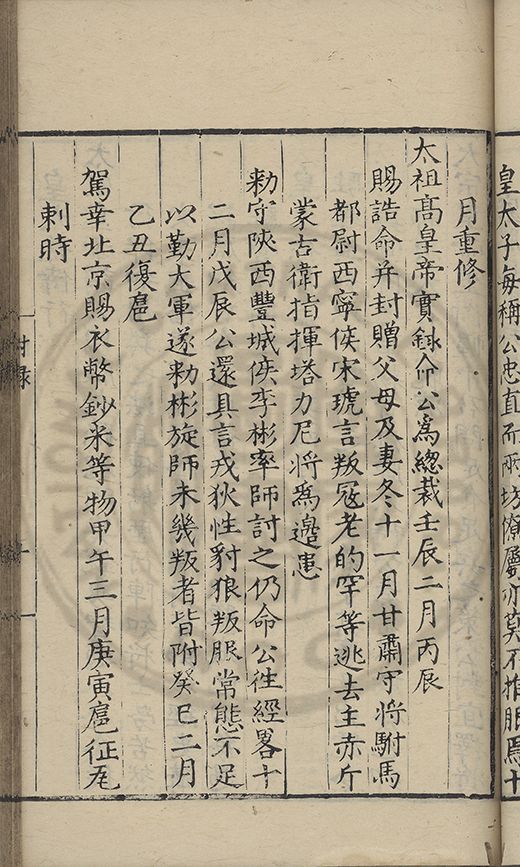 皇太子每稱公忠直而兩坊僚屬亦莫不推服焉十
月重修
太祖髙皇帝實録命公爲總裁壬辰二月丙辰
賜誥命并封贈父母及妻冬十一月甘肅守將駙馬
都尉西寧侯宋琥言叛寇老的罕等逃去主赤斤
蒙古衛指揮塔力尼將爲邊患
勑守陝西豐城侯李彬率師討之仍命公徃經畧十
二月戊辰公還具言戎狄性豺狼叛服常態不足
以勤大軍遂勑彬旋師未幾叛者皆附癸巳二月
乙丑復扈
駕幸北京賜衣幣鈔米等物甲午三月庚寅扈征瓦
剌時
附录